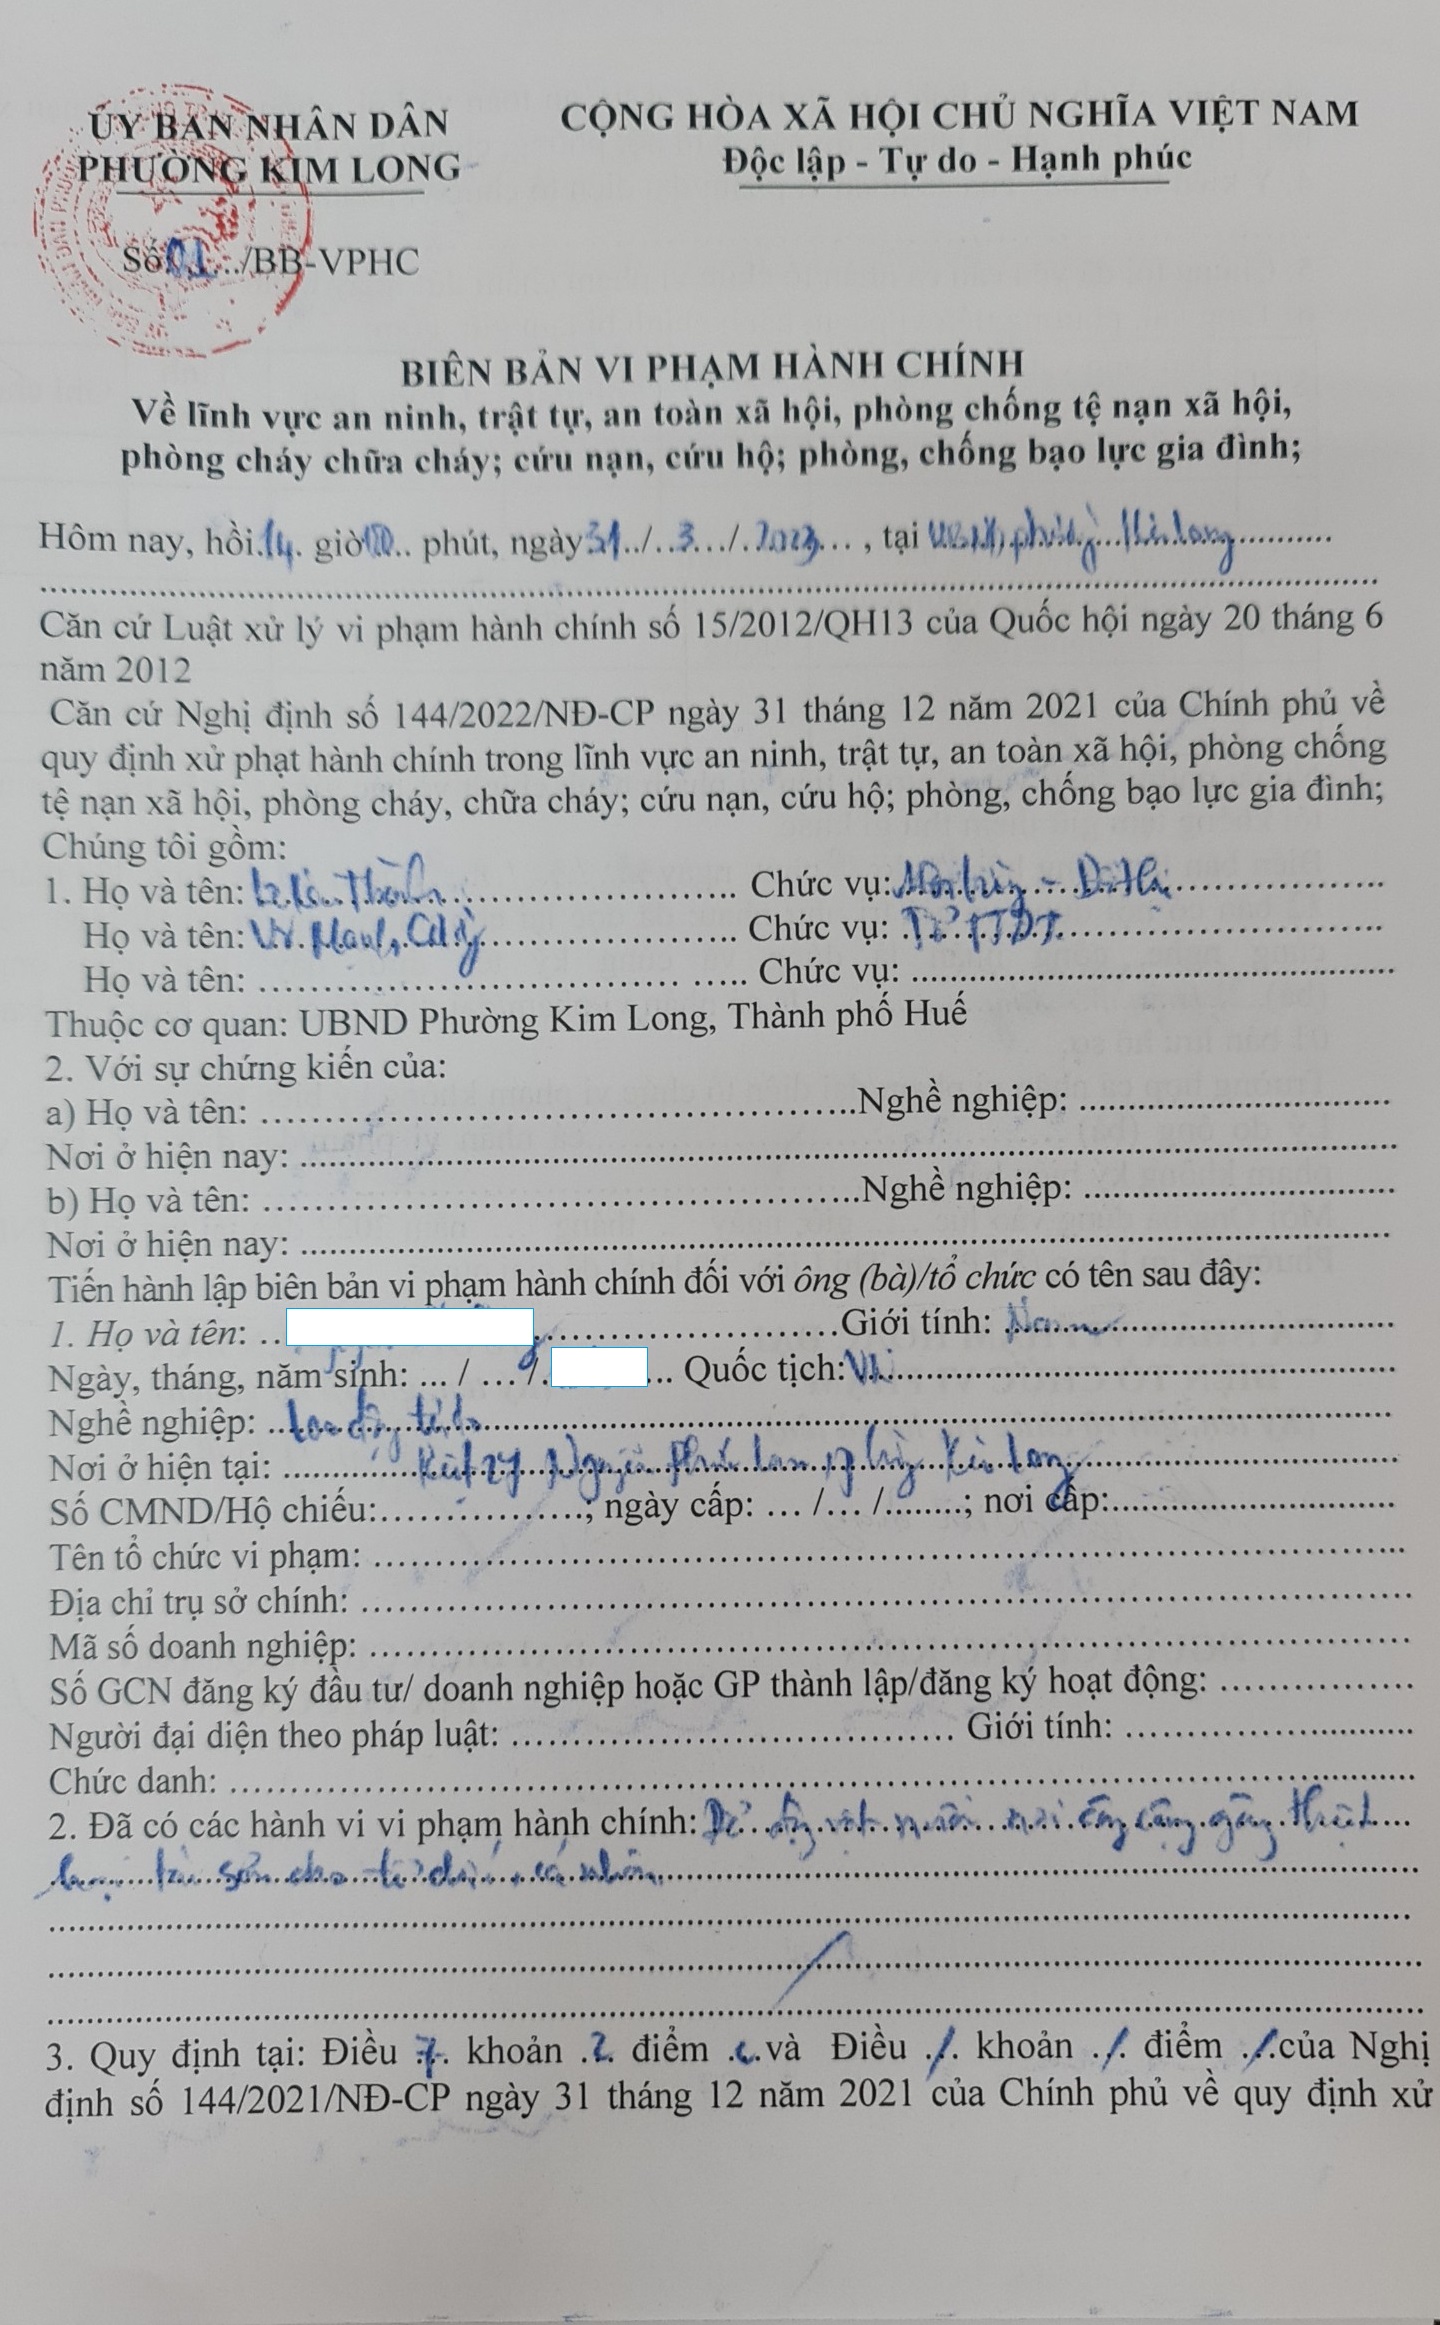 ỦY BAN NHÂN DÂN
PHƯỜNG KIM LONG
CỘNG HÒA XÃ HỘI CHỦ NGHĨA VIỆT NAM
Độc lập - Tự do - Hạnh phúc
Số:01.../BB-VPHC
BIÊN BẢN VI PHẠM HÀNH CHÍNH
Về lĩnh vực an ninh, trật tự, an toàn xã hội, phòng chống tệ nạn xã hội,
phòng cháy chữa cháy; cứu nạn, cứu hộ; phòng, chống bạo lực gia đình;
Hôm nay, hồi.14. giờ00.. phút, ngày31../..3.../.2023... , tại UBND phường Kim Long
Căn cứ Luật xử lý vi phạm hành chính số 15/2012/QH13 của Quốc hội ngày 20 tháng 6
năm 2012
Căn cứ Nghị định số 144/2022/NĐ-CP ngày 31 tháng 12 năm 2021 của Chính phủ về
quy định xử phạt hành chính trong lĩnh vực an ninh, trật tự, an toàn xã hội, phòng chống
tệ nạn xã hội, phòng cháy, chữa cháy; cứu nạn, cứu hộ; phòng, chống bạo lực gia đình;
Chúng tôi gồm:
1. Họ và tên: ... Chức vụ:
Họ và tên: ... Chức vụ:
Họ và tên: ... Chức vụ: ...
Thuộc cơ quan: UBND Phường Kim Long, Thành phố Huế
2. Với sự chứng kiến của:
a) Họ và tên: ...Nghề nghiệp: ...
Nơi ở hiện nay: ...
b) Họ và tên: ...Nghề nghiệp: ...
Nơi ở hiện nay: ...
Tiến hành lập biên bản vi phạm hành chính đối với ông (bà)/tổ chức có tên sau đây:
1. Họ và tên: ...Giới tính: Nam
Ngày, tháng, năm sinh: ... / ... /. ... Quốc tịch:
Nghề nghiệp: ..Lao động tự do
Nơi ở hiện tại: ...Kiệt 27 Nguyễn Phúc Lan, phường Kim Long
Số CMND/Hộ chiếu:...; ngày cấp: ... /... /...; nơi cấp:...
Tên tổ chức vi phạm: ...
Địa chỉ trụ sở chính: ...
Mã số doanh nghiệp: ...
Số GCN đăng ký đầu tư/ doanh nghiệp hoặc GP thành lập/đăng ký hoạt động: ...
Người đại diện theo pháp luật: ... Giới tính: ...
Chức danh: ...
2. Đã có các hành vi vi phạm hành chính: Để động vật nuôi nơi công cộng gây thiệt
hại tài sản cho tổ chức, cá nhân
3. Quy định tại: Điều .7. khoản .2. điểm .c.và Điều ./. khoản ./. điểm ./.của Nghị
định số 144/2021/NĐ-CP ngày 31 tháng 12 năm 2021 của Chính phủ về quy định xử